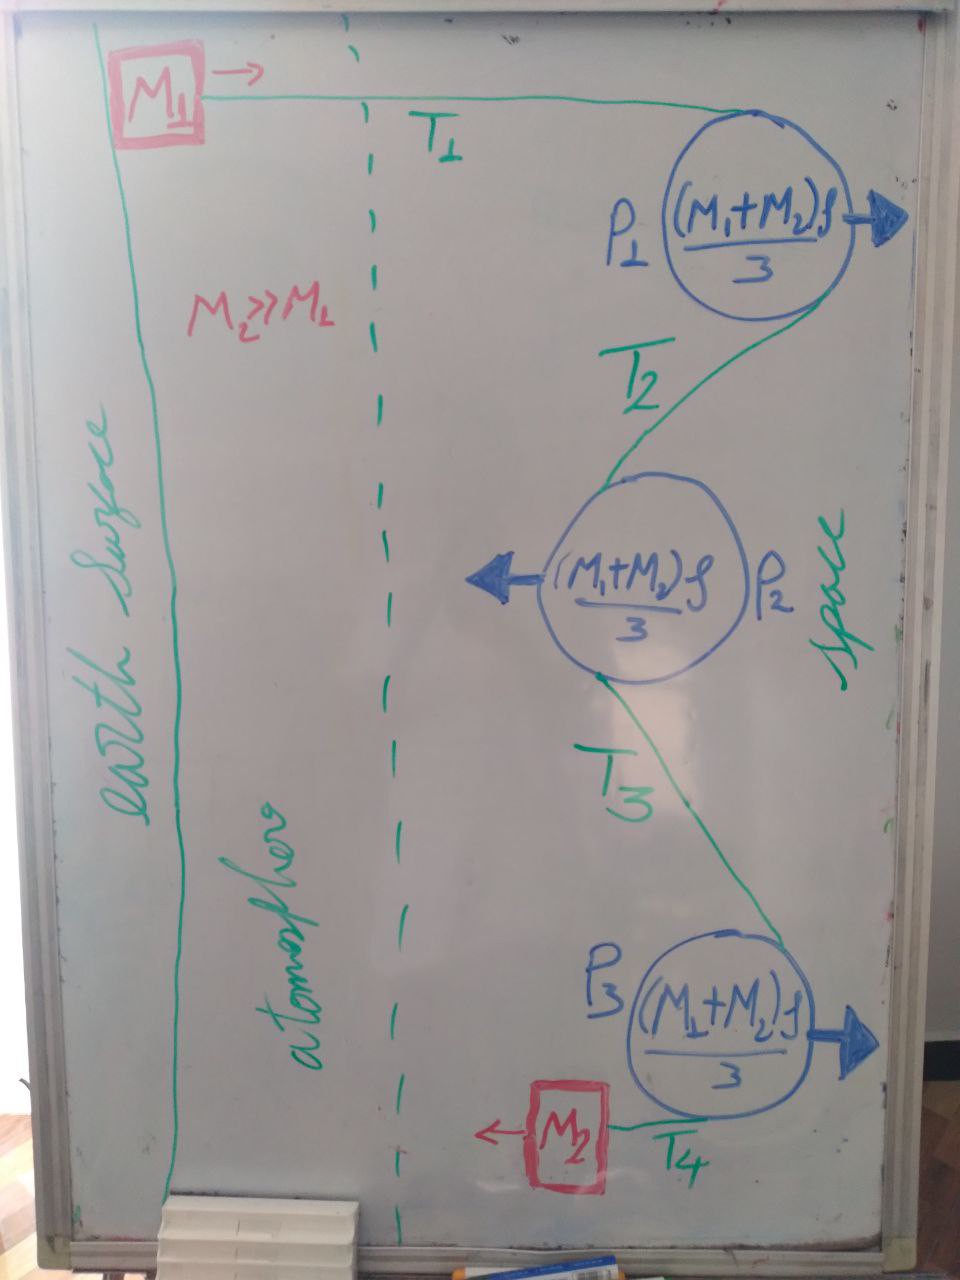 M1
T1
P1
(M1+M2)g
3
M2>>M1
T2
earth surface
(M1+M2)g
3
P2
space
T3
atomosphere
P3
(M1+M2)g
3
M2
T4